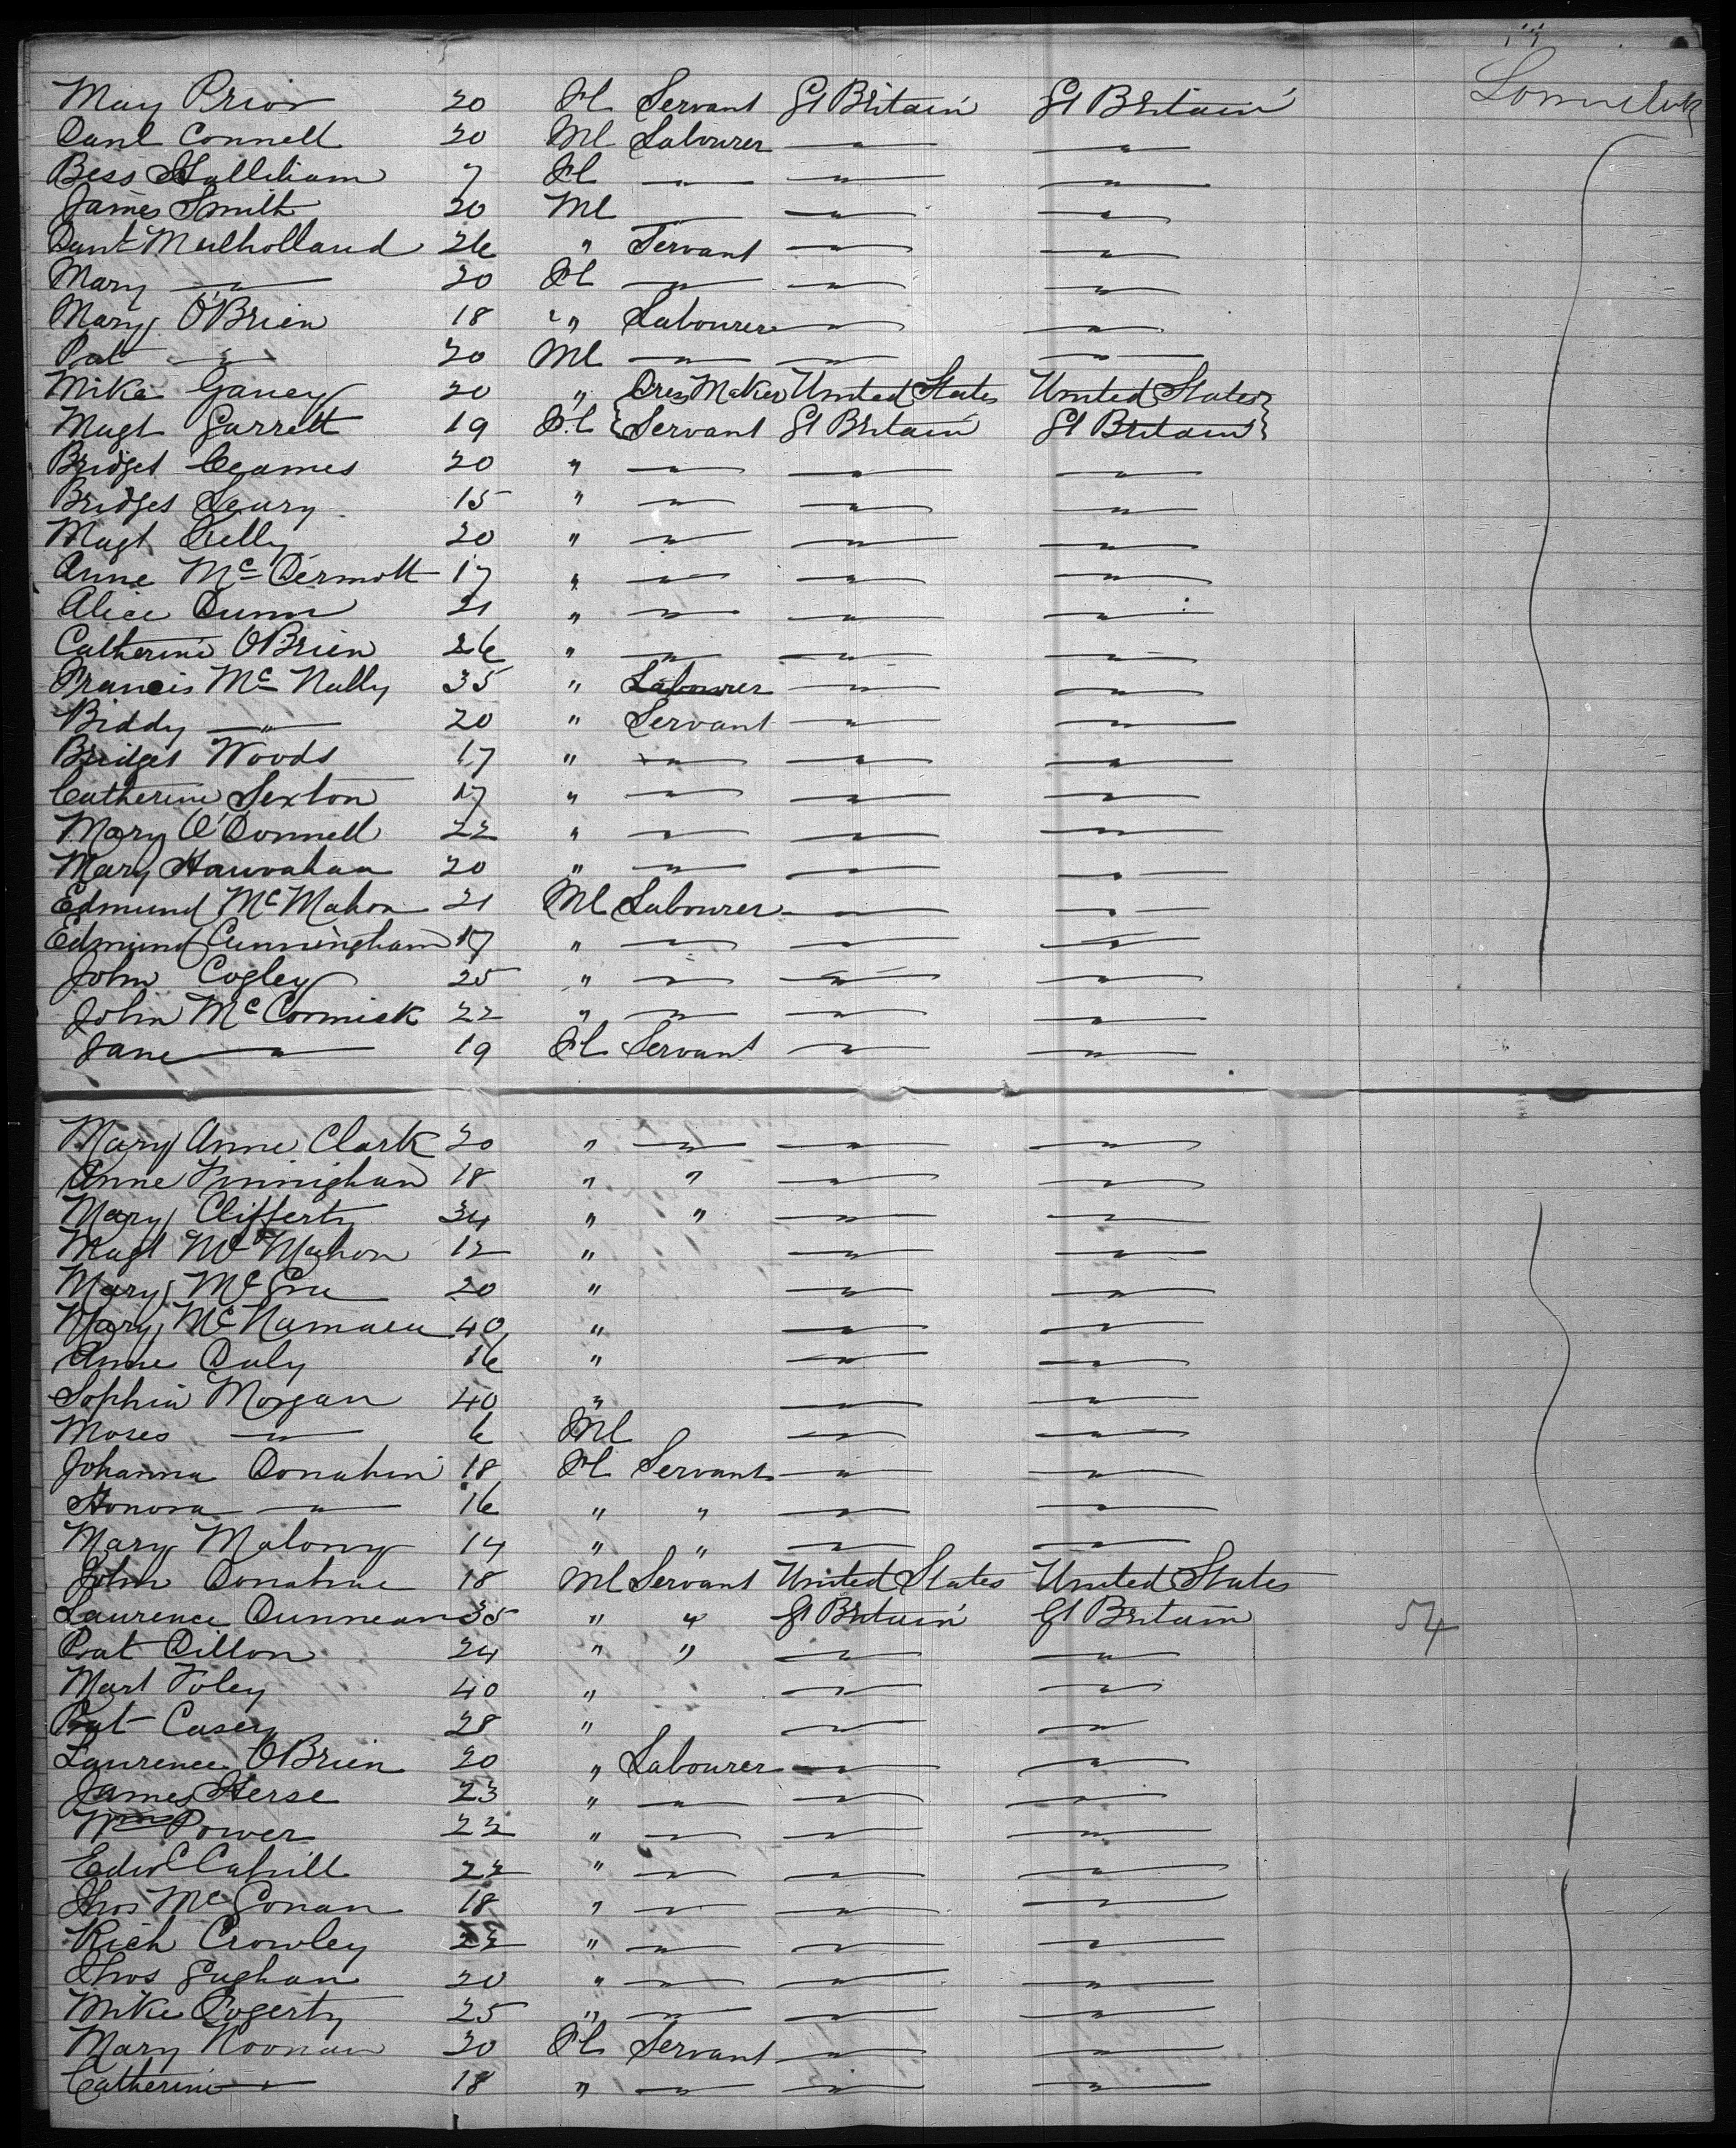 May Prior 20 Fl Servant Gt Britain Gt Britain
Danl Connell 20 Ml Labourer " "
Bess Halliham 7 Fl " " "
James Smith 20 Ml " " "
Danl Mulholland 26 " Servant " "
Mary " 20 Fl " " "
Mary O'Brien 18 " Labourer " "
Pat " 20 Ml " " "
Mike Ganey 20 " Dres Maker United States United States
Magt Garrett 19 Fl Servant Gt Britain Gt Britain
Bridget 20 " " " "
Bridget Leary 15 " " " "
Magt Kelly 20 " " " "
Anne Mc Dermott 17 " " " "
Alice Dunn 21 " " " "
Catherine O'Brien 26 " " " "
Francis Mc Nally 35 " Labourer " "
Biddy " 20 " Servant " "
Bridget Woods 17 " " " "
Catherine Sexton 17 " " " "
Mary O'Donnell 22 " " " "
Mary 20 " " " "
Edmund McMahon 21 Ml Labourer " "
Edmund Cunningham 17 " " " "
John Cogley 25 " " " "
John McCormick 22 " " " "
Jane " 19 Fl Servant " "
Mary Anne Clark 20 " " " "
Anne Finnighan 18 " " " "
Mary Clifferty 34 " " " "
Magt McMahon 12 " " "
Mary 20 " " "
Mary McNamara 40 " " "
Anne Daly 16 " " "
Sophia Morgan 40 " " "
Moses " 6 Ml " "
Johanna Donahue 18 Fl Servant " "
Honora " 16 " " " "
Mary Malony 14 " " " "
John Donahue 18 Ml Servant United States United States
Laurence Dunnean 35 " " Gt Britain Gt Britain 54
Pat Dillon 24 " " " "
Mart Foley 40 " " "
Pat Casey 28 " " "
Laurence O'Brien 20 " Labourer " "
James Herse 23 " " " "
Wm Power 22 " " " "
Edwd Cahill 22 " " " "
Thos McGonan 18 " " " "
Rich Crowley 22 " " " "
Thos Gughan 20 " " " "
Mike Fogerty 25 " " " "
Mary Noonan 20 Fl Servant " "
Catherine " 18 " " " "